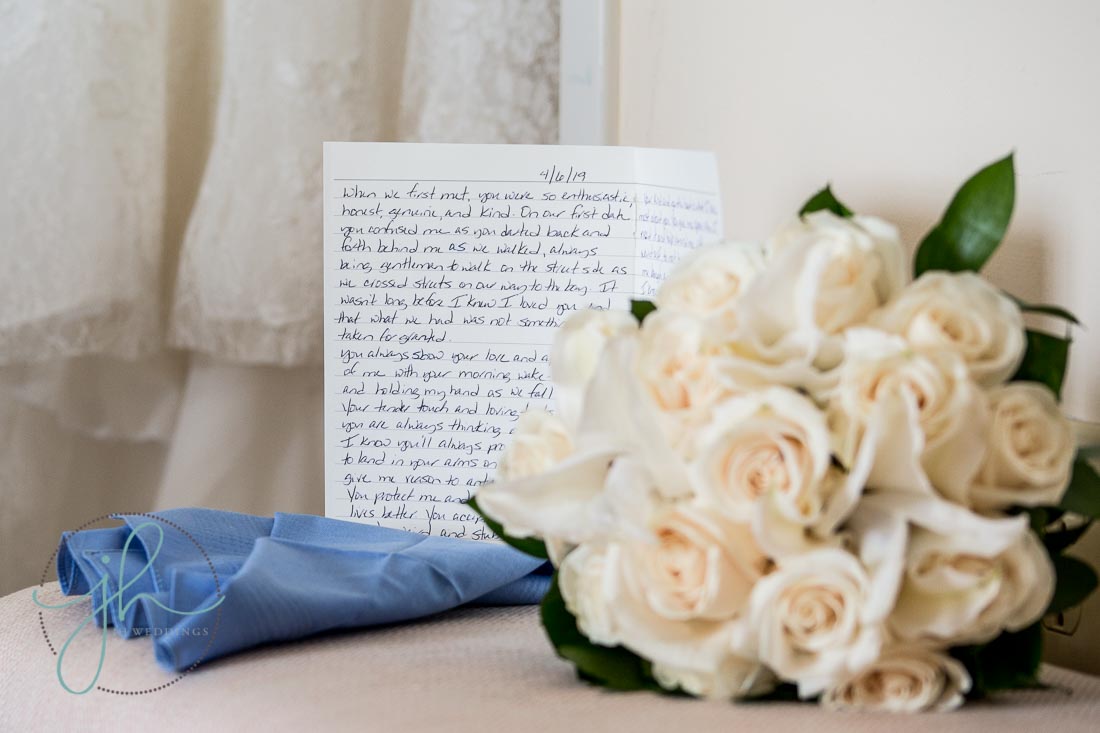 4/6/19
When we first met, you were so enthusiastic,
honest, genuine, and kind. On our first date
you confused me as you darted back and
forth behind me as we walked, always
being gentlemen to walk on the street side as
we crossed streets on our way to the bay. It
wasn't long before I knew I loved you and
that what we had was not someth
taken for granted.
You always show your love and a
of me with your morning wake
and holding my hand as we fall
Your tender touch and loving
you are always thinking
I know you'll always pro
to land in your arms
give me reason to
You protect me and
lives better. You accep
and stu
jh
WEDDINGS